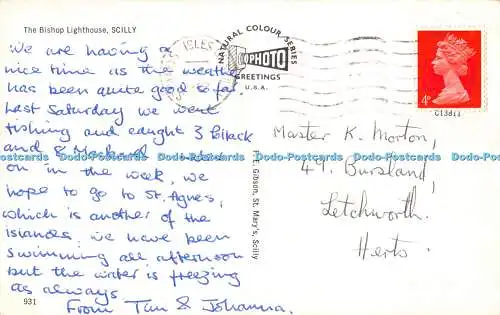 The Bishop Lighthouse, SCILLY
We are having a
nice time as the weather
has been quite good so far
Last Saturday we went
fishing and caught 3 Pollack
and 8 Mackerel. Later
on in the week, we
hope to go to St. Agnes,
which is another of the
islands, we have been
swimming all afternoon
but the water is freezing
as always
From Tan & Johanna.
931
F. E. Gibson, St. Mary's, Scilly
ISLES
NATURAL COLOUR SERIES
PHOTO
GREETINGS
U.S.A.
4P
C13811
Master K. Morton,
47, Bursland,
Letchworth.
Herts.
Dodo-Postcards Dodo-Postcards Dodo-Postcards Dodo-Postcards Dodo-Postcards